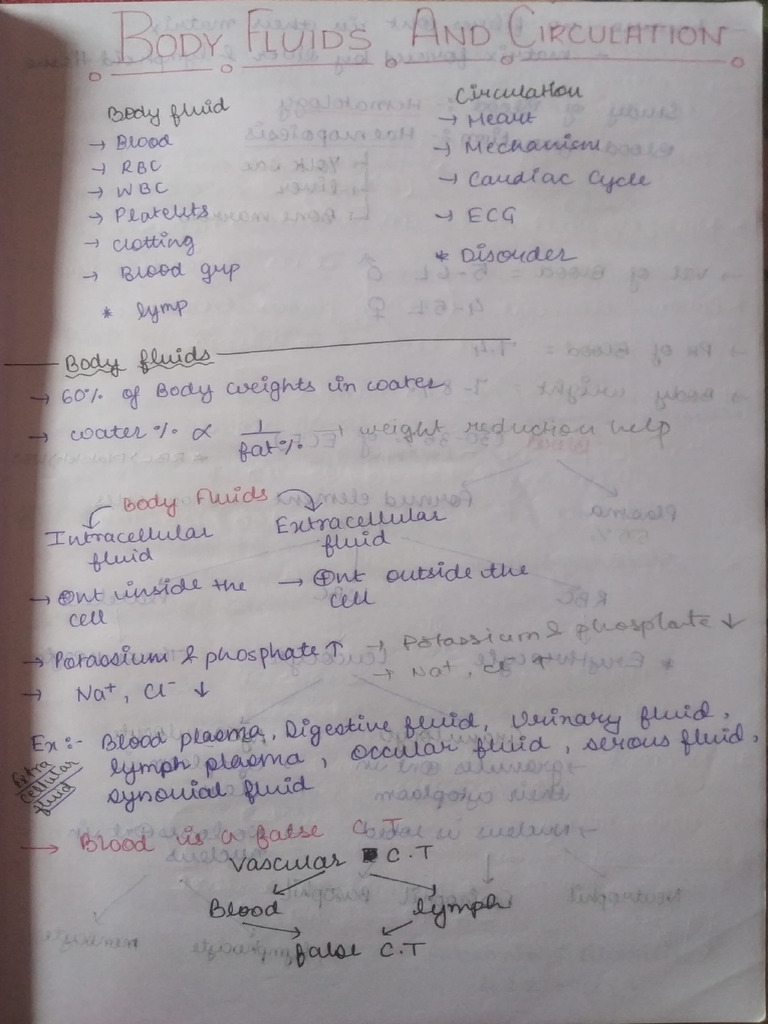 BODY FLUIDS AND CIRCULATION
Body fluid
→ Blood
→ RBC
→ WBC
→ Platelets
→ clotting
→ Blood grp
* lymp
Circulation
→ Heart
→ Mechanism
→ Cardiac Cycle
→ ECG
* Disorder
Body fluids
→ 60% of Body weights in water
→ water % ∝ 1/fat% → weight reduction help
Body Fluids
Intracellular
fluid
→ ⊕nt inside the
cell
→ Potassium & phosphate ↑
→ Na⁺, Cl⁻ ↓
Extracellular
fluid
→ ⊕nt outside the
cell
→ Potassium & phosphate ↓
→ Na⁺, Cl⁻ ↑
Ex:- Blood plasma, Digestive fluid, Urinary fluid,
lymph plasma, occular fluid, serous fluid,
synovial fluid
Extra
cellular
fluid
→ Blood is a false C.T
Vascular C.T
Blood lymph
false C.T